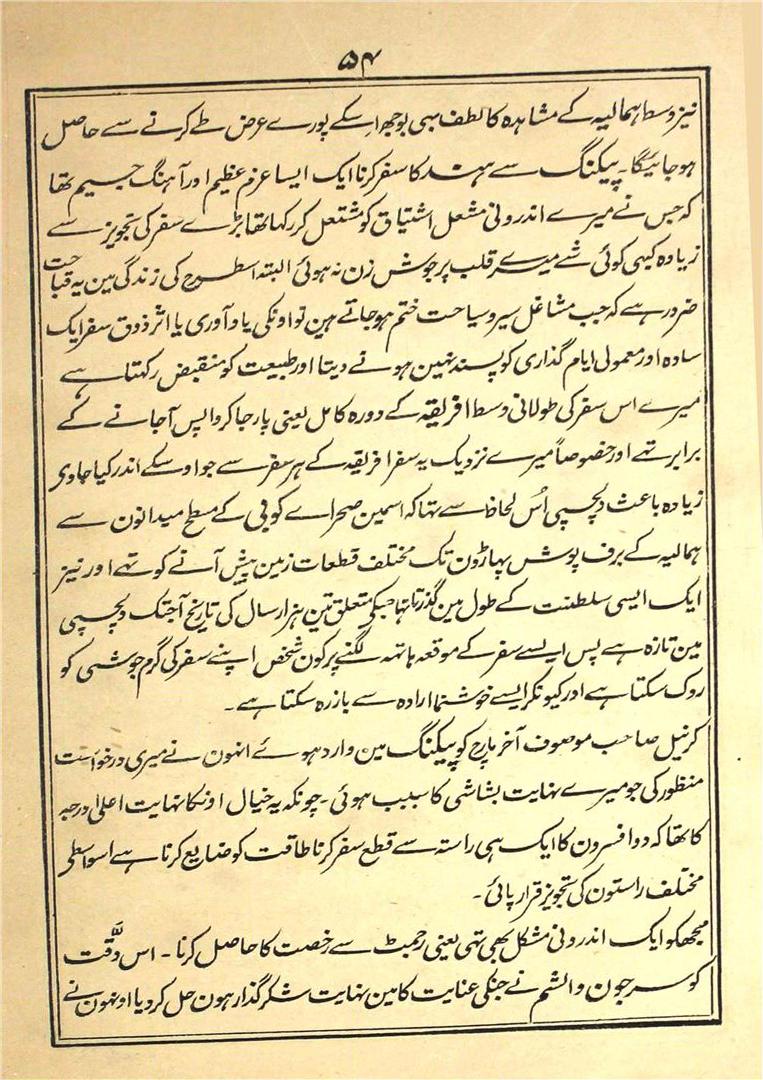 ۵۴
نیز وسط ہمالیہ کے مشاہدہ کا لطف بھی بوجھ اسکے پورے عرض طے کرنے سے حاصل
ہو جائیگا۔ پیکنگ سے ہند کا سفر کرنا ایک ایسا عزم عظیم اور آہنگ جسیم تھا
کہ جس نے میرے اندرونی مشعل اشتیاق کو مشتعل کر رکھا تھا بڑے سفر کی تجویز سے
زیادہ کبھی کوئی شے میرے قلب پر جوش زن نہ ہوئی البتہ اسطرح کی زندگی مین یہ قباحت
ضرور ہے کہ جب مشاغل سیر و سیاحت ختم ہو جاتے ہین تو اونکی یادآوری یا اثر ذوق سفر ایک
سادہ اور معمولی ایام گذاری کو پسند نہین ہونے دیتا اور طبیعت کو منقبض رکھتا ہے
میرے اس سفر کی طولانی وسط افریقہ کے دورہ کامل یعنی پار جا کر واپس آجانے کے
برابر تھے اور خصوصاً میرے نزدیک یہ سفر افریقہ کے ہر سفر سے جو اوسکے اندر کیا جاوی
زیادہ باعث دلچسپی اُس لحاظ سے تھا کہ اسمین صحراے کوبی کے مسطح میدانون سے
ہمالیہ کے برف پوش پہاڑون تک مختلف قطعات زمین پیش آنے کو تھے اور نیز
ایک ایسی سلطنت کے طول مین گذرنا تھا جسکی متعلق تین ہزار سال کی تاریخ آجتک دلچسپی
مین تازہ ہے پس ایسے سفر کے موقعہ ہاتھہ لگنے پر کون شخص اپنے سفر کی گرم جوشی کو
روک سکتا ہے اور کیونکر ایسے خوشنما ارادہ سے باز رہ سکتا ہے۔
کرنیل صاحب موصوف آخر مارچ کو پیکنگ مین وارد ہوئے انہون نے میری درخواست
منظور کی جو میرے نہایت بشاشی کا سبب ہوئی۔ چونکہ یہ خیال اونکا نہایت اعلیٰ درجہ
کا تھا کہ دو افسرون کا ایک ہی راستہ سے قطع سفر کرنا طاقت کو ضایع کرنا ہے اسواسطی
مختلف راستون کی تجویز قرار پائی۔
مجھکو ایک اندرونی مشکل بھی تھی یعنی رجمنٹ سے رخصت کا حاصل کرنا۔ اس دقّت
کو سر جون والشم نے جنکی عنایت کا مین نہایت شکر گذار ہون حل کر دیا اونہون نے